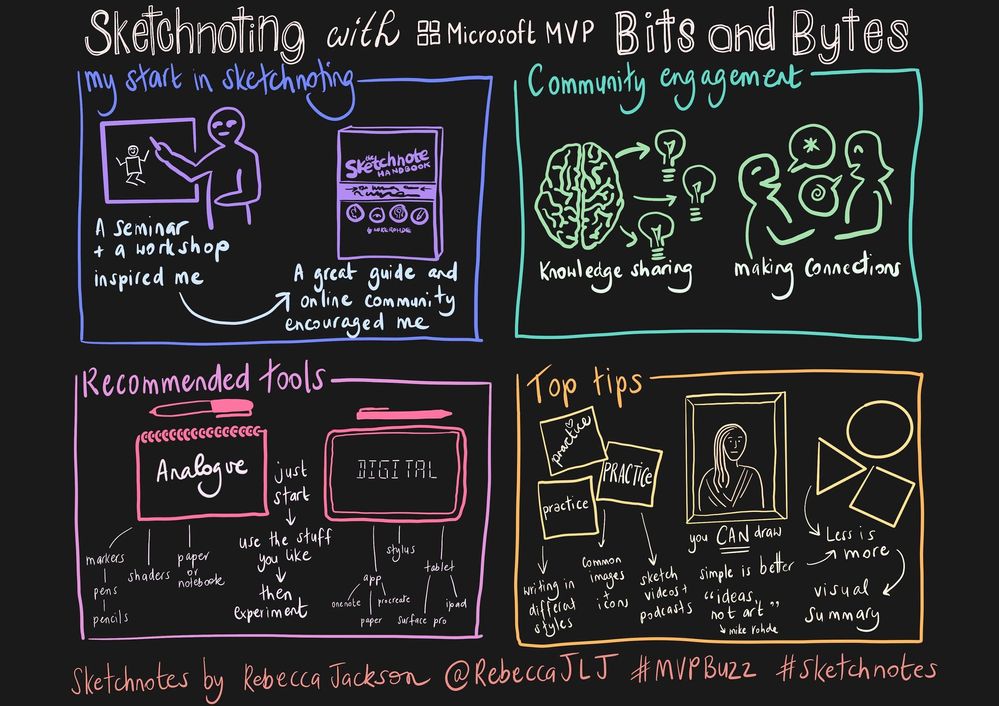 Sketchnoting with Microsoft MVP Bits and Bytes
my start in sketchnoting
the
Sketchnote
HANDBOOK
by MIKE ROHDE
A seminar
+ a workshop
inspired me
A great guide and
online community
encouraged me
Community engagement
Knowledge sharing
making connections
Recommended tools
Analogue
markers
pens
pencils
shaders
paper
or
notebook
just
start
use the stuff
you like
then
experiment
DIGITAL
stylus
app
onenote
procreate
paper
tablet
surface pro
ipad
Top tips
practice
PRACTICE
practice
writing in
different
styles
common
images
+
icons
sketch
videos +
podcasts
you CAN draw
simple is better
"ideas,
not art"
mike rohde
Less is
more
visual
summary
Sketchnotes by Rebecca Jackson @RebeccaJLJ #MVPBuzz #sketchnotes